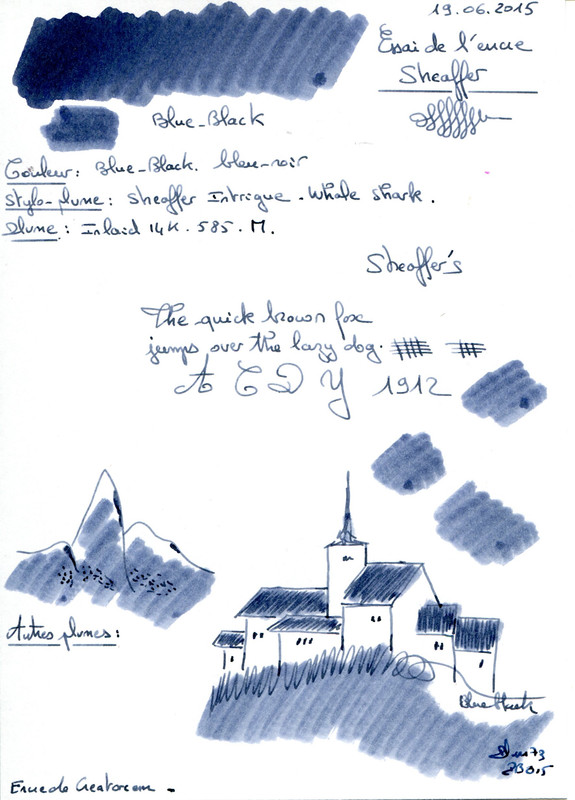 19.06.2015
Essai de l'encre
Sheaffer
Blue-Black
Couleur: Blue-Black. bleu-noir
Stylo-plume: Sheaffer Intrigue. Whale shark.
Plume: Inlaid 14K. 585. M.
Sheaffer's
The quick brown fox
jumps over the lazy dog.
A C D Y 1912
Autres plumes:
Blue Black